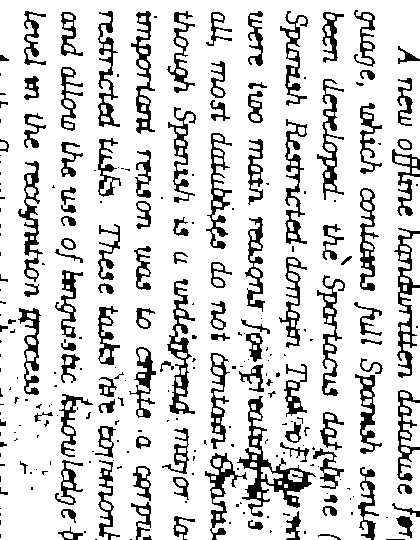 A new offline handwritten database for
guage, which contains full Spanish senten
been developed: the Spartacus database (
Spanish Restricted-domain Task of
were two main reasons for creating this
all, most databases do not contain Spanis
though Spanish is a widespread major la
important reason was to create a corpus
restricted tasks. These tasks are common
and allow the use of linguistic knowledge b
level in the recognition process